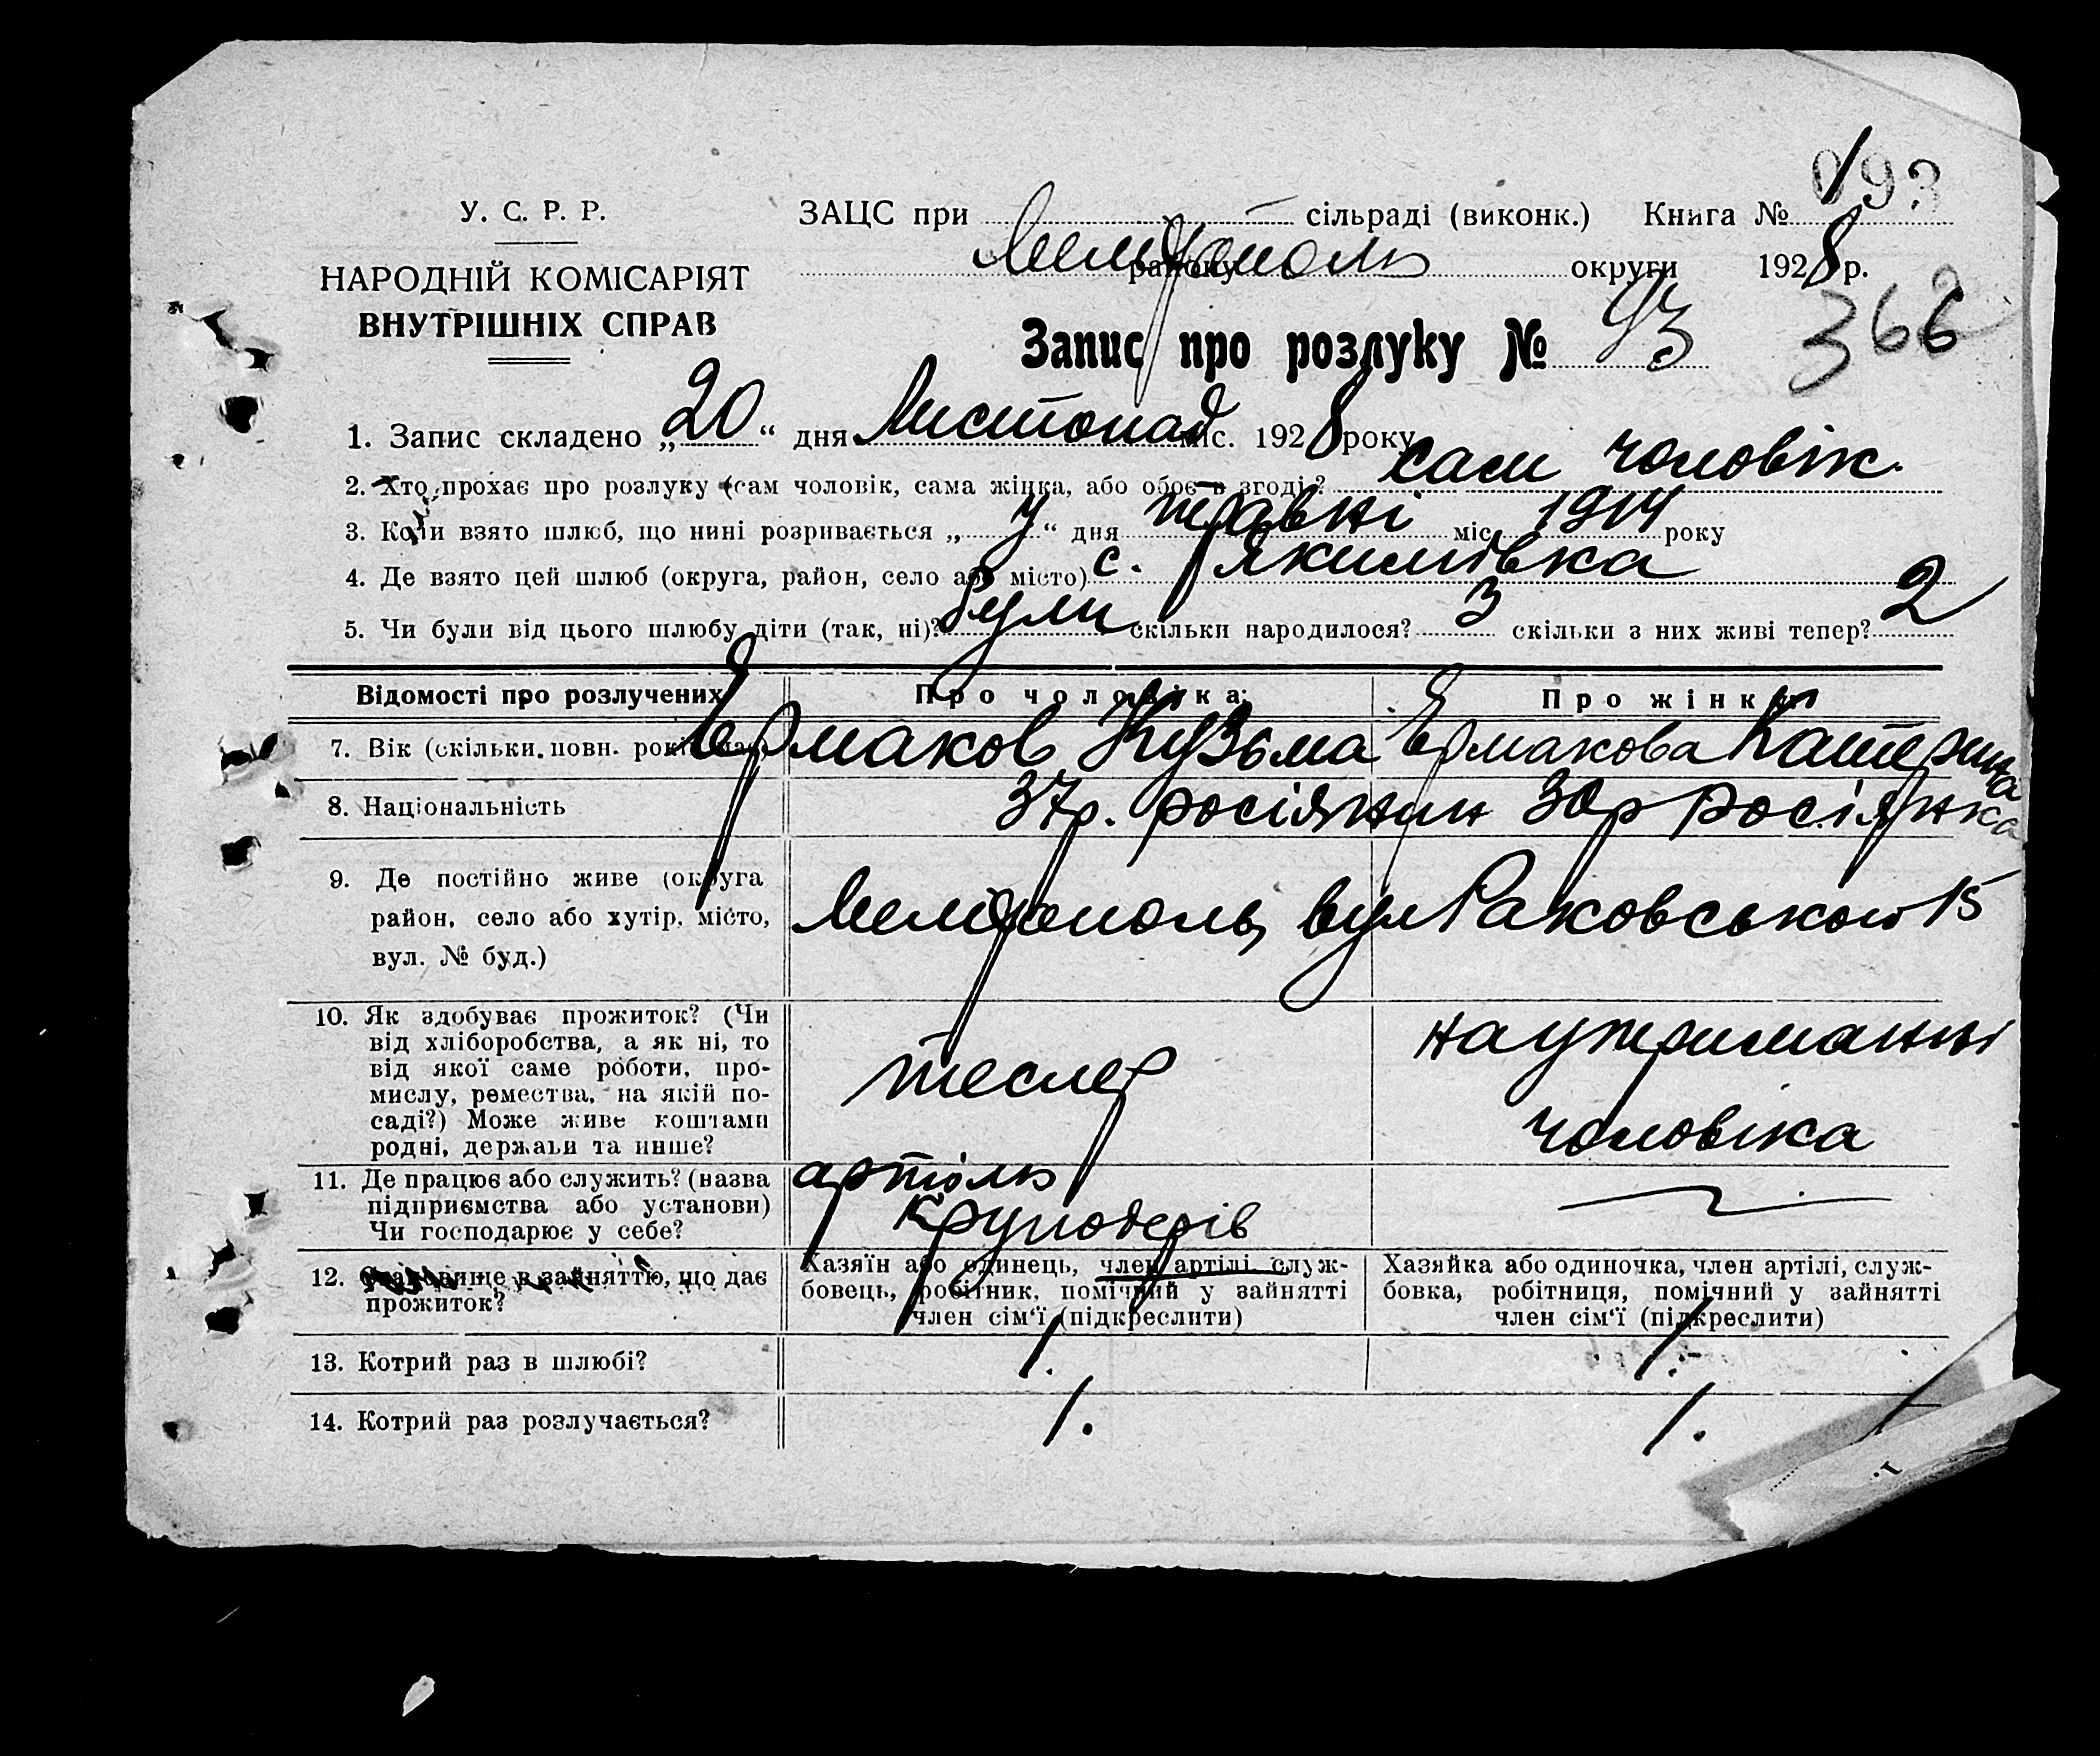 193
У. С. Р. Р.
ЗАЦС при сільраді (виконк.) Книга №
НАРОДНІЙ КОМІСАРІЯТ
ВНУТРІШНІХ СПРАВ
Мелітополь району округи 1928 р.
Запис про розлуку № 93
366
1. Запис складено „20“ дня Листопад міс. 1928 року
2. Хто прохає про розлуку (сам чоловік, сама жінка, або обоє в згоді)? сам чоловік.
3. Коли взято шлюб, що нині розривається „у“ дня травні міс. 1914 року
4. Де взято цей шлюб (округа, район, село або місто) с. Якимівка
5. Чи були від цього шлюбу діти (так, ні)? були скільки народилося? 3 скільки з них живі тепер? 2
Відомості про розлучених Про чоловіка: Про жінку
7. Вік (скільки повн. років має) Єрмаков Кузьма Єрмакова Катерина
8. Національність 37 р. росіянин 30 р росіянка
9. Де постійно живе (округа
район, село або хутір, місто,
вул. № буд.)
Мелітополь, вул Раковського 15
10. Як здобуває прожиток? (Чи
від хліборобства, а як ні, то
від якої саме роботи, про-
мислу, ремества, на якій по-
саді?) Може живе коштами
родні, держави та инше?
тесляр
на утриманні
чоловіка
11. Де працює або служить? (назва
підприємства або установи)
Чи господарює у себе?
артіль
Круподерів
12. Становище в зайняттю, що дає
прожиток?
Хазяїн або одинець, член артілі, служ-
бовець, робітник, помічний у зайнятті
член сім‘ї (підкреслити)
Хазяйка або одиночка, член артілі, служ-
бовка, робітниця, помічний у зайнятті
член сім‘ї (підкреслити)
13. Котрий раз в шлюбі? 1. 1.
14. Котрий раз розлучається? 1. 1.